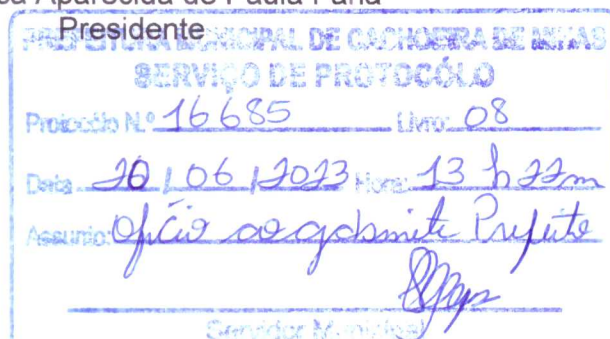 Aparecida de Paula Faria
Presidente
PREFEITURA MUNICIPAL DE CACHOEIRA DE MINAS
SERVIÇO DE PROTOCÓLO
Protocólo N.º 16685 Livro: 08
Data 20 / 06 / 2023 Hora: 13 h 22m
Assunto: Ofício ao gabinete Prefeito
Servidor Municipal